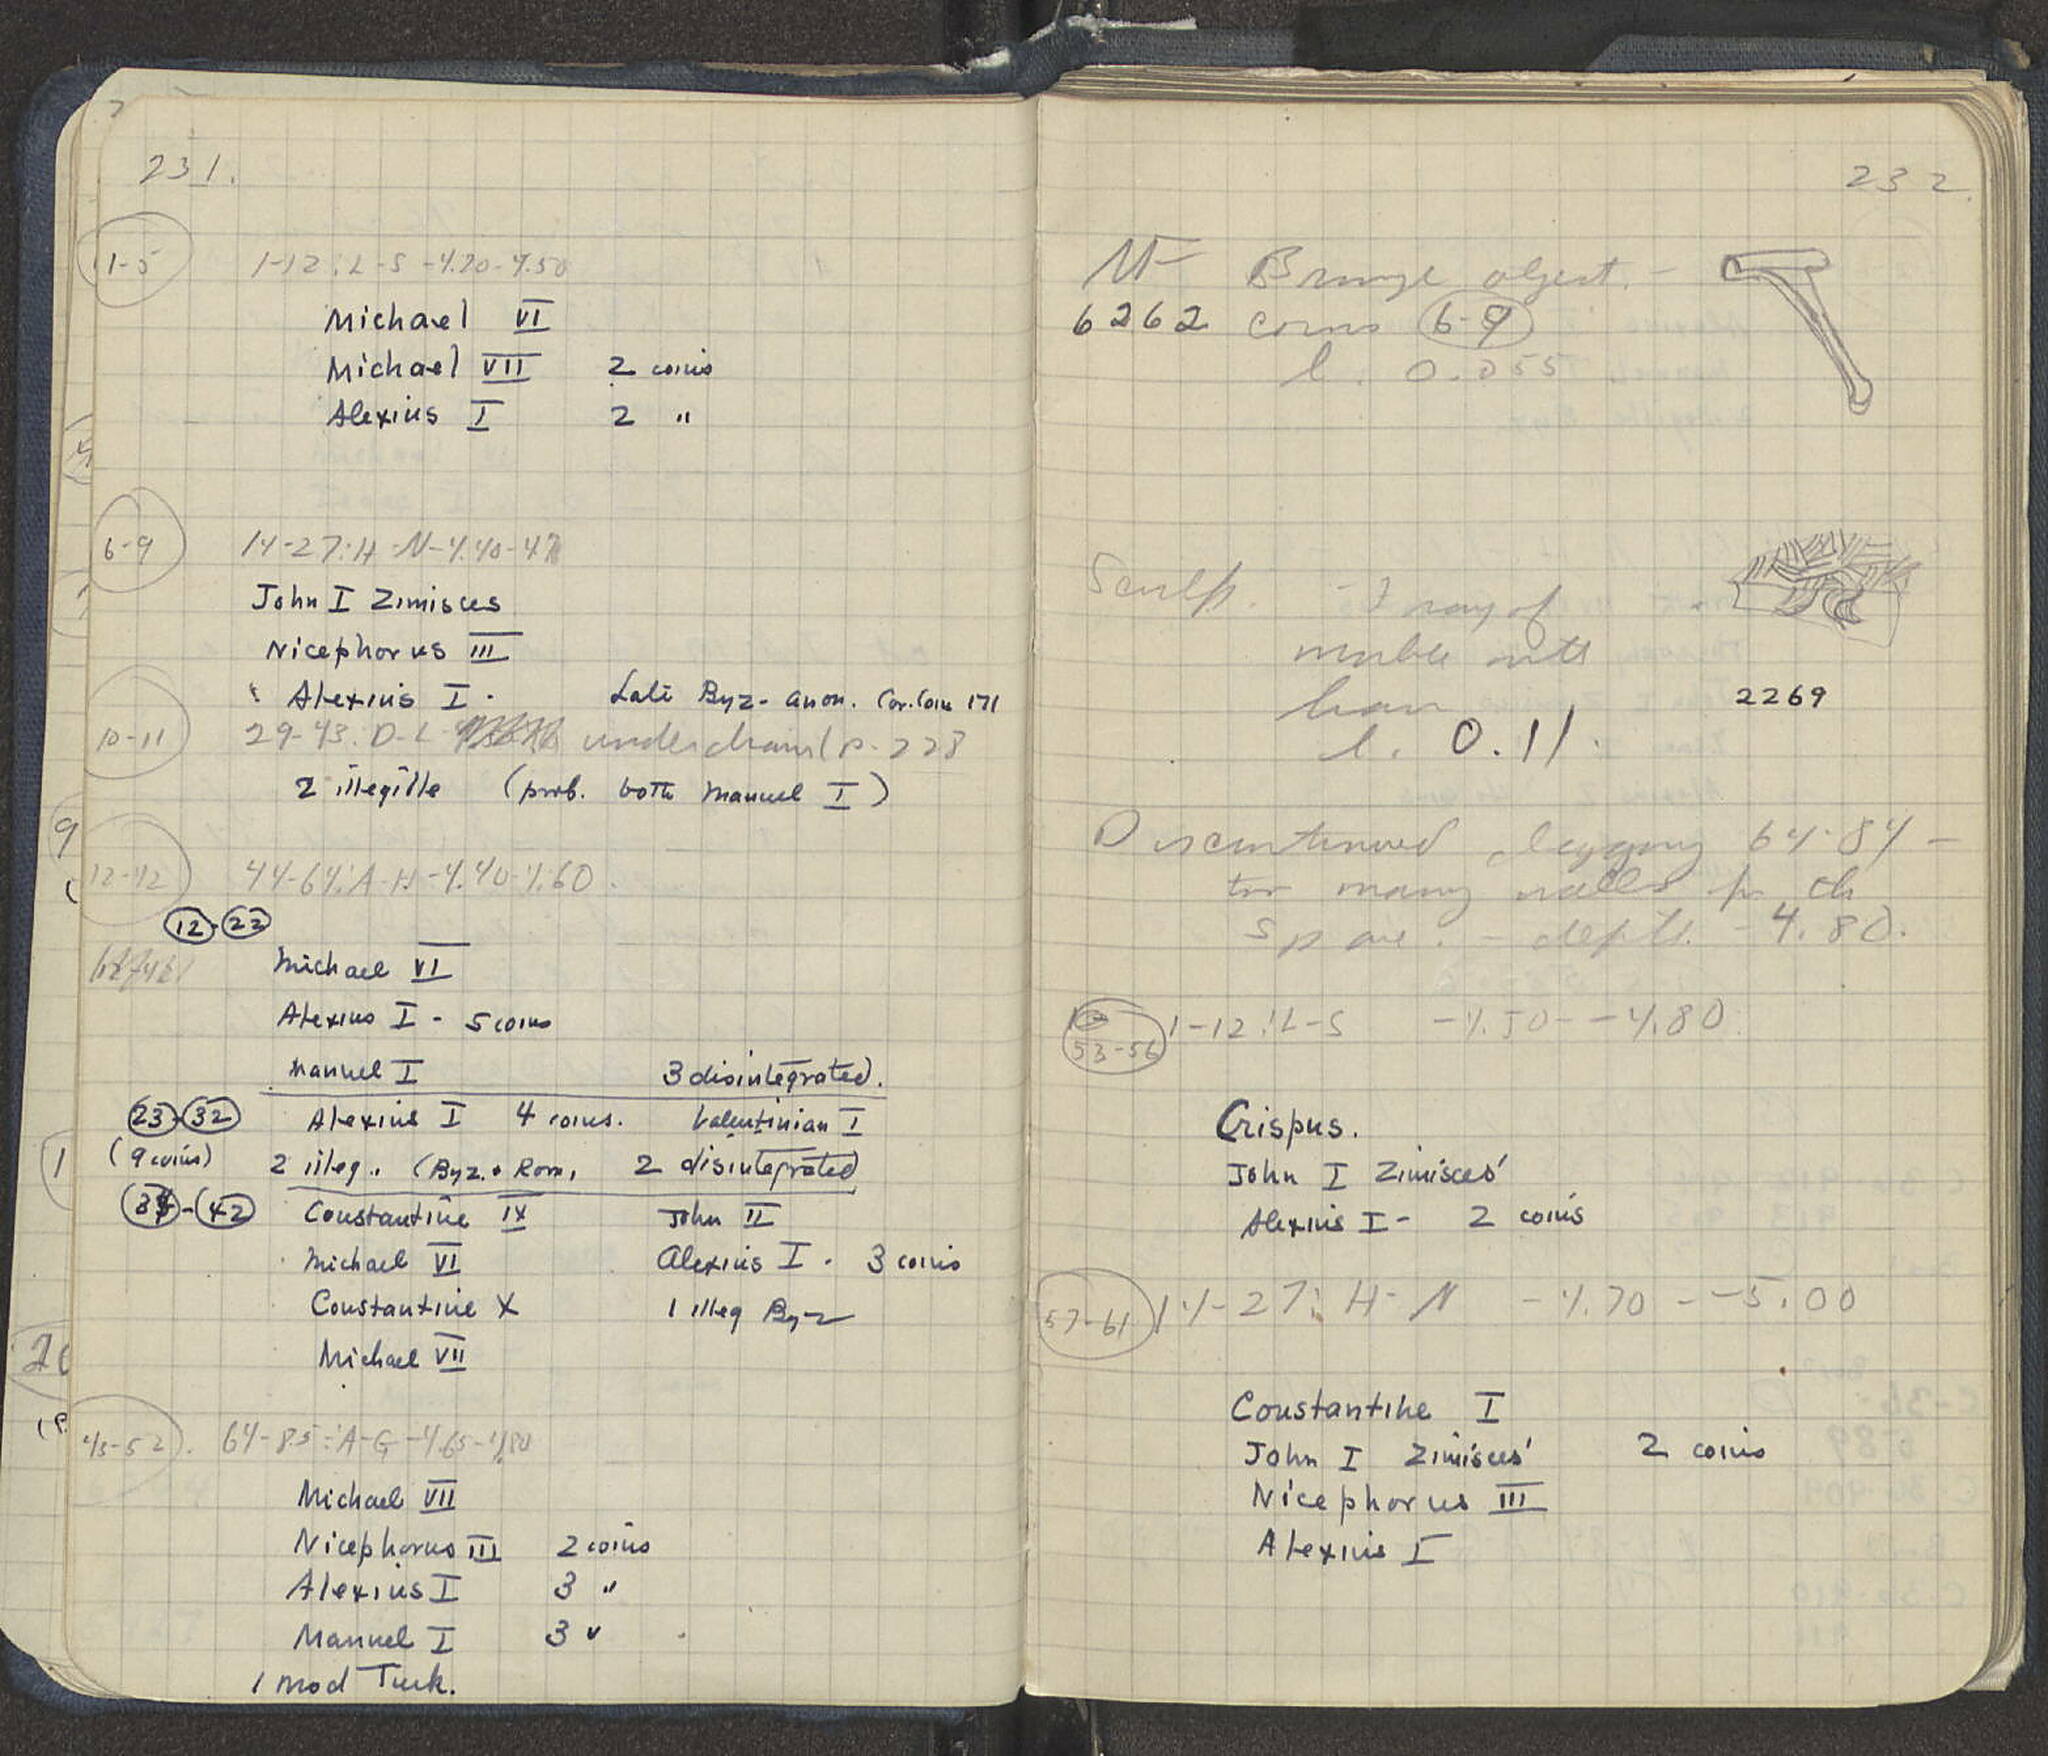 231.
1-5 1-12:L-S -4.20-4.50
Michael VI
Michael VII 2 coins
Alexius I 2 "
6-9 14-27:H-N-4.40-47
John I Zimisces
Nicephorus III
Alexius I - Late Byz- anon. Cor. Coins 171
10-11 29-43:D-L under drain (p. 228
2 illegible (prob. both Manuel I)
12-42 44-64:A-H-4.40-4.60.
12-22
Michael VI
Alexius I - 5 coins
Manuel I 3 disintegrated.
23-32 Alexius I 4 coins. Valentinian I
(9 coins) 2 illeg. (Byz. + Rom, 2 disintegrated
-42 Constantine IX John II
Michael VI Alexius I - 3 coins
Constantine X 1 illeg Byz
Michael VII
43-52 64-85:A-G-4.65-4.80
Michael VII
Nicephorus III 2 coins
Alexius I 3 "
Manuel I 3 "
1 mod Turk.
232.
MF Bronze object. -
6262 coins 6-9
l. 0.055
Sculp. - Frag of
marble with
hair
2269
l. 0.11.
Discontinued digging 64-84 -
too many walls for the
space. - depth -4.80.
53-56 1-12:L-S -4.50--4.80.
Crispus.
John I Zimisces
Alexius I - 2 coins
57-61 14-27:H-N -4.70--5.00
Constantine I
John I Zimisces 2 coins
Nicephorus III
Alexius I